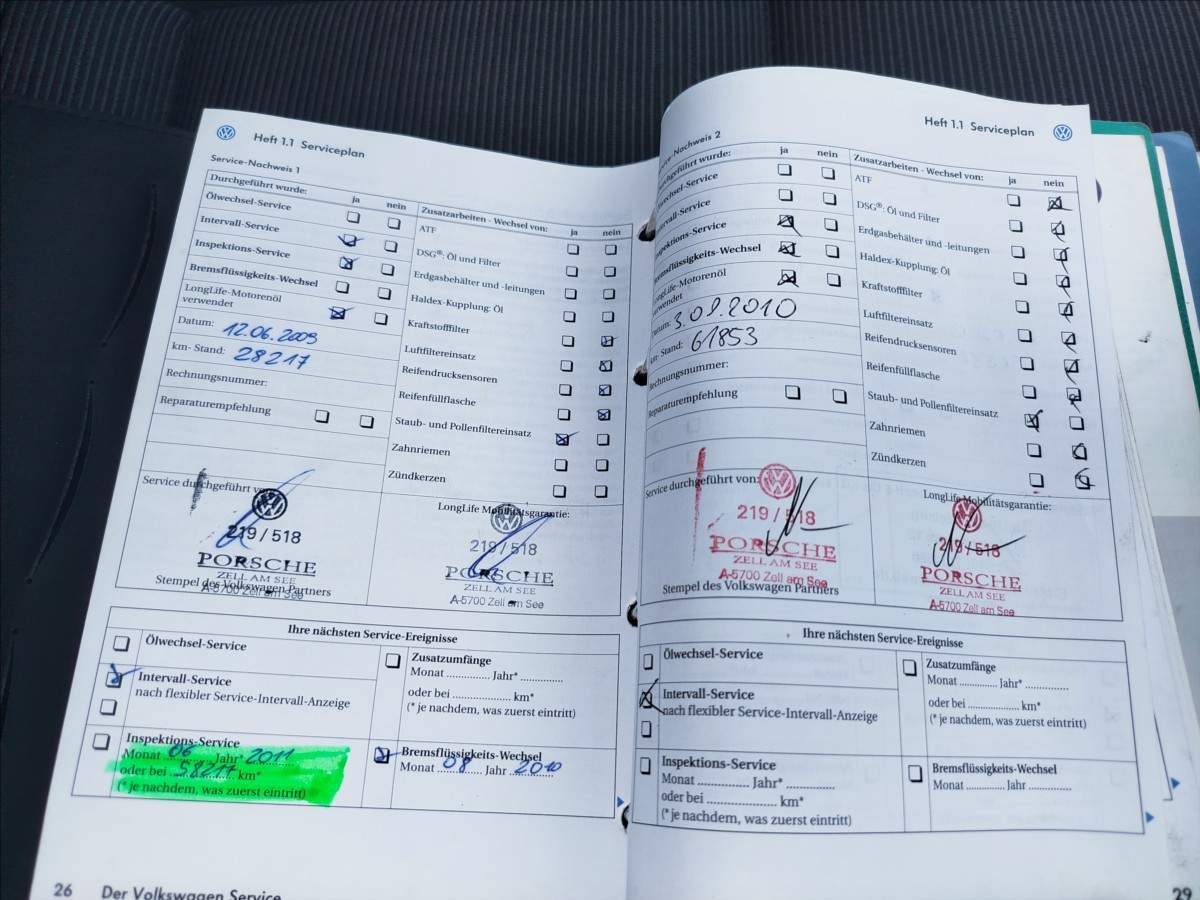 Heft 1.1 Serviceplan
Service-Nachweis 1
Durchgeführt wurde: ja nein
Ölwechsel-Service
Intervall-Service
Inspektions-Service
Bremsflüssigkeits-Wechsel
LongLife-Motorenöl
verwendet
Datum: 12.06.2009
km- Stand: 28217
Rechnungsnummer:
Reparaturempfehlung
Zusatzarbeiten - Wechsel von: ja nein
ATF
DSG®: Öl und Filter
Erdgasbehälter und -leitungen
Haldex-Kupplung: Öl
Kraftstofffilter
Luftfiltereinsatz
Reifendrucksensoren
Reifenfüllflasche
Staub- und Pollenfiltereinsatz
Zahnriemen
Zündkerzen
Service durchgeführt von:
219/518
PORSCHE
ZELL AM SEE
A-5700 Zell am See
Stempel des Volkswagen Partners
LongLife Mobilitätsgarantie:
219/518
PORSCHE
ZELL AM SEE
A-5700 Zell am See
Ihre nächsten Service-Ereignisse
Ölwechsel-Service
Intervall-Service
nach flexibler Service-Intervall-Anzeige
Inspektions-Service
Monat 06 Jahr* 2011
oder bei 58217 km*
(* je nachdem, was zuerst eintritt)
Zusatzumfänge
Monat .............. Jahr* ..............
oder bei .................... km*
(* je nachdem, was zuerst eintritt)
Bremsflüssigkeits-Wechsel
Monat 08 Jahr 2010
26 Der Volkswagen Service
Heft 1.1 Serviceplan
Service-Nachweis 2
Durchgeführt wurde: ja nein
Ölwechsel-Service
Intervall-Service
Inspektions-Service
Bremsflüssigkeits-Wechsel
LongLife-Motorenöl
verwendet
Datum: 3.08.2010
km- Stand: 61853
Rechnungsnummer:
Reparaturempfehlung
Zusatzarbeiten - Wechsel von: ja nein
ATF
DSG®: Öl und Filter
Erdgasbehälter und -leitungen
Haldex-Kupplung: Öl
Kraftstofffilter
Luftfiltereinsatz
Reifendrucksensoren
Reifenfüllflasche
Staub- und Pollenfiltereinsatz
Zahnriemen
Zündkerzen
Service durchgeführt von:
219/518
PORSCHE
ZELL AM SEE
A-5700 Zell am See
Stempel des Volkswagen Partners
LongLife Mobilitätsgarantie:
219/518
PORSCHE
ZELL AM SEE
A-5700 Zell am See
Ihre nächsten Service-Ereignisse
Ölwechsel-Service
Intervall-Service
nach flexibler Service-Intervall-Anzeige
Inspektions-Service
Monat .............. Jahr* ..............
oder bei .................... km*
(* je nachdem, was zuerst eintritt)
Zusatzumfänge
Monat .............. Jahr* ..............
oder bei .................... km*
(* je nachdem, was zuerst eintritt)
Bremsflüssigkeits-Wechsel
Monat .............. Jahr ..............
29